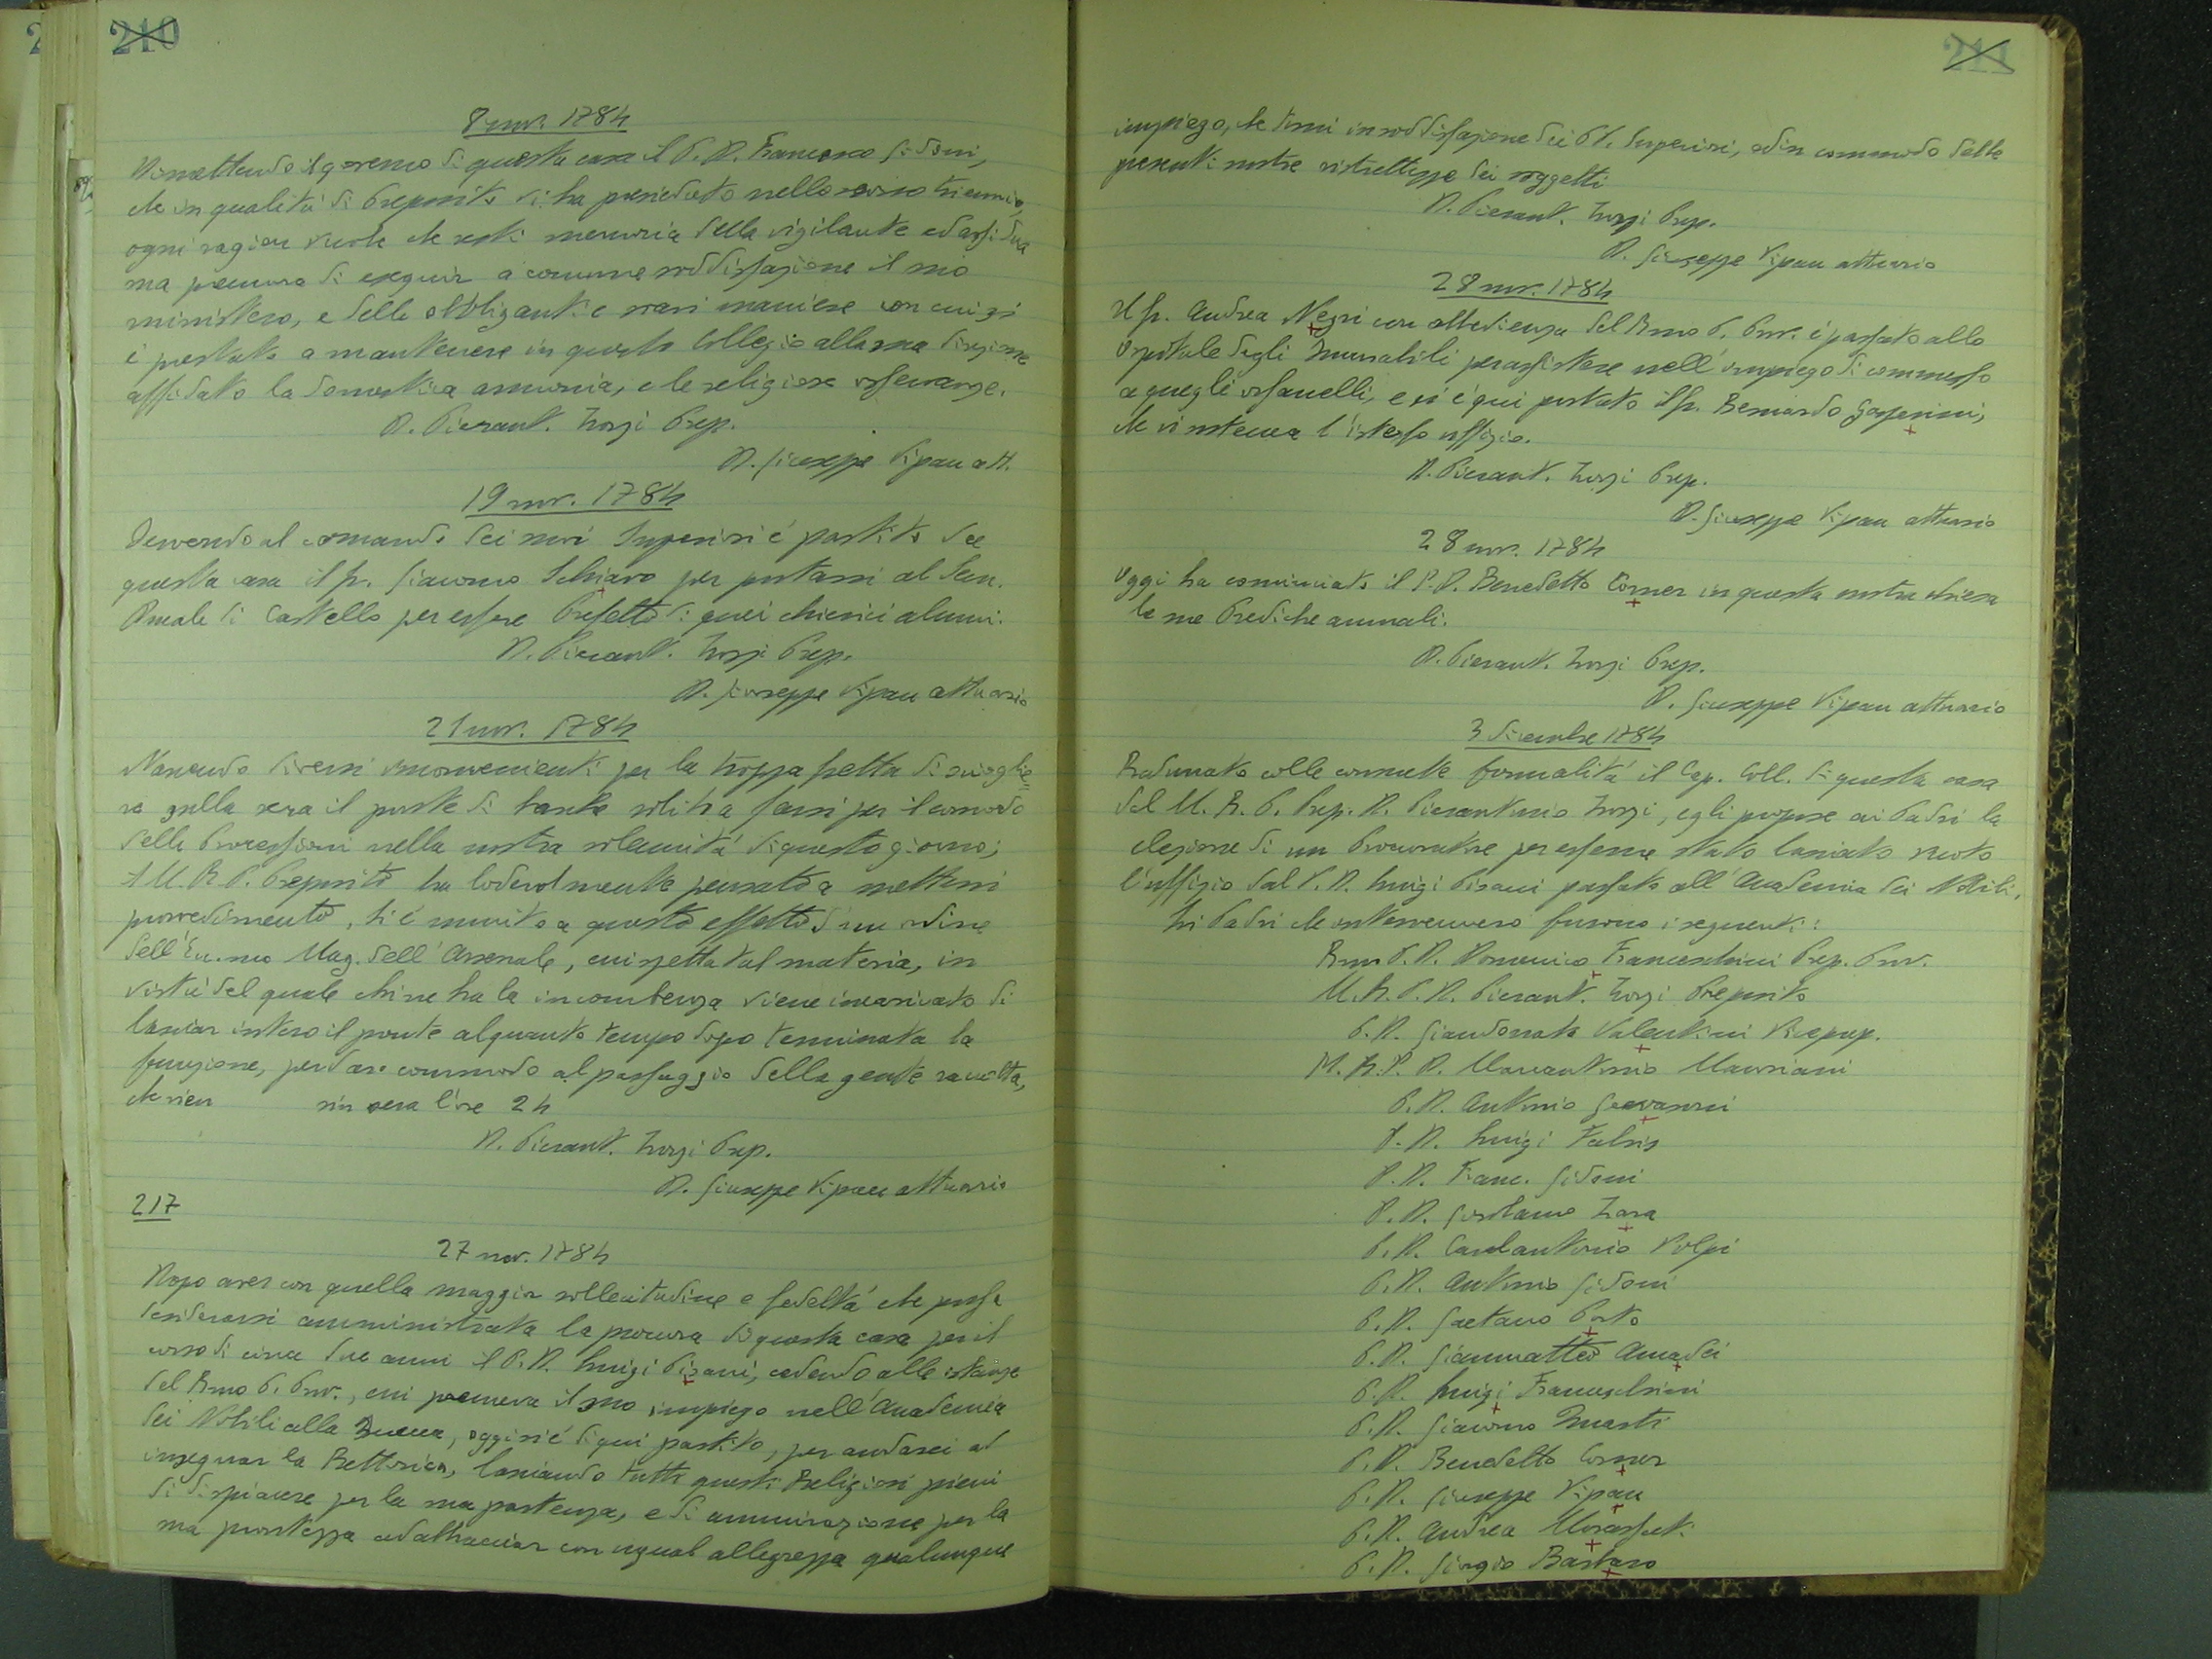 210
8 nov. 1784
Dimettendo il governo di questa casa il P. D. Francesco Gidoni,
che in qualità di Preposito vi ha presieduto nello scorso triennio,
ogni ragion vuole che resti memoria della vigilante ed assidua
sua premura di eseguir a comune soddisfazione il suo
ministero, e delle obbliganti e soavi maniere con cui si
è prestato a mantenere in questo Collegio alla sua direzione
affidato la domestica armonia, e le religiose osservanze.
D. Pierant. Zorzi Prep.
D. Giuseppe Vipau att.
19 nov. 1784
Devendo al comando dei suoi Superiori è partito da
questa casa il fr. Giacomo Schiavo per portarsi al Sem.
Ducale di Castello per essere Prefetto di quei chierici alunni.
D. Pierant. Zorzi Prep.
D. Giuseppe Vipau attuario
21 nov. 1784
Nascendo diversi inconvenienti per la troppa fretta di scioglie"
re sulla sera il ponte di barche solito a farsi per il comodo
delle Processioni nella nostra solennità di questo giorno;
il M. R. P. Preposito ha lodevolmente pensato a mettervi
provvedimento, si è munito a questo effetto d'un ordine
dell'Ecc.mo Mag. dell'Arsenale, cui spetta tal materia, in
virtù del quale chi ne ha la incombenza viene incaricato di
lasciar intero il ponte alquanto tempo dopo terminata la
funzione, per dare commodo al passaggio della gente raccolta,
che sien sin verso l'ore 24
D. Pierant. Zorzi Prep.
D. Giuseppe Vipau attuario
217
27 nov. 1784
Dopo aver con quella maggior sollecitudine e fedeltà che possa
desiderarsi amministrata la procura di questa casa per il
corso di circa due anni il P. D. Luigi Pisani, cedendo alle istanze
del Rmo P. Prov., cui premeva il suo impiego nell'Accademia
dei Nobili alla Zuecca, oggi si è di qui partito, per andarci ad
insegnar la Rettorica, lasciando tutti questi Religiosi pieni
di dispiacere per la sua partenza, e di ammirazione per la
sua prontezza ad abbracciar con ugual allegrezza qualunque
211
impiego, che torni in soddisfazione dei PP. Superiori, ed in commodo delle
presenti nostre ristrettezze dei soggetti
D. Pierant. Zorzi Prep.
D. Giuseppe Vipau attuario
28 nov. 1784
Il fr. Andrea Negri con obbedienza del Rmo P. Prov. è passato allo
Ospitale degli Incurabili per assistere nell'impiego di commesso
a quegli orfanelli, e si è qui portato il fr. Bernardo Gasperini,
che vi sosteneva l'istesso uffizio.
D. Pierant. Zorzi Prep.
D. Giuseppe Vipau attuario
28 nov. 1784
Oggi ha cominciato il P. D. Benedetto Corner in questa nostra chiesa
le sue Prediche annuali.
D. Pierant. Zorzi Prep.
D. Giuseppe Vipau attuario
3 dicembre 1784
Radunato colle consuete formalità il Cap. Coll. di questa casa
dal M. R. P. Prep. D. Pierantonio Zorzi, egli propose ai Padri la
elezione di un Procuratore per essere stato lasciato vuoto
l'uffizio dal P. D. Luigi Pisani passato all'Accademia dei Nobili.
Li Padri che intervennero furono i seguenti:
Rmo P. D. Domenico Franceschini Prep. Prov.
M. R. P. D. Pierant. Zorzi Preposito
P. D. Giandonato Valentini Viceprep.
M. R. P. D. Marcantonio Mauriani
P. D. Antonio Gervasoni
P. D. Luigi Fabris
P. D. Franc. Gidoni
P. D. Girolamo Zara
P. D. Carlantonio Volpi
P. D. Antonio Gidoni
P. D. Gaetano Porto
P. D. Gianmatteo Amadei
P. D. Luigi Franceschini
P. D. Giacomo Zuasti
P. D. Benedetto Corner
P. D. Giuseppe Vipau
P. D. Andrea Morassuti
P. D. Giorgio Bastaro